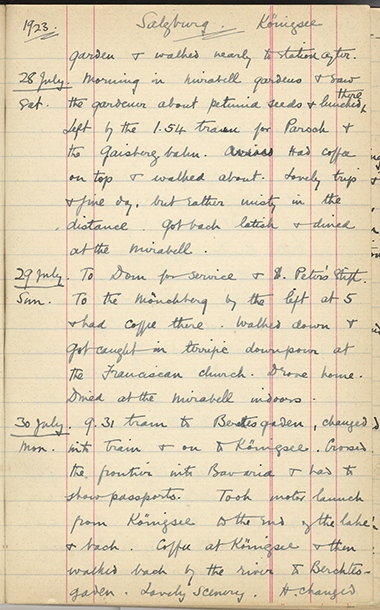 1923. Salzburg. Königsee
garden & walked nearly to station after.
28 July. Morning in Mirabell gardens & saw
Sat. the gardener about petunia seeds & lunched there
Left by the 1.54 train for Parsch &
the Gaisberg bahn. Had coffee
on top & walked about. Lovely trip
& fine day, but rather misty in the
distance. Got back latish & dined
at the Mirabell.
29 July. To Dom for service & St. Peter's Stift.
Sun. To the Mönchberg by the lift at 5
& had coffee there. Walked down &
got caught in terrific downpour at
the Franciscan church. Drove home.
Dined at the Mirabell indoors.
30 July. 9.31 train to Berchtesgaden, changed
Mon. into train & on to Königsee. Crossed
the frontier into Bavaria & had to
show passports. Took motor launch
from Königsee to the end of the lake
& back. Coffee at Königsee & then
walked back by the river to Berchtes-
gaden. Lovely scenery. H. changed